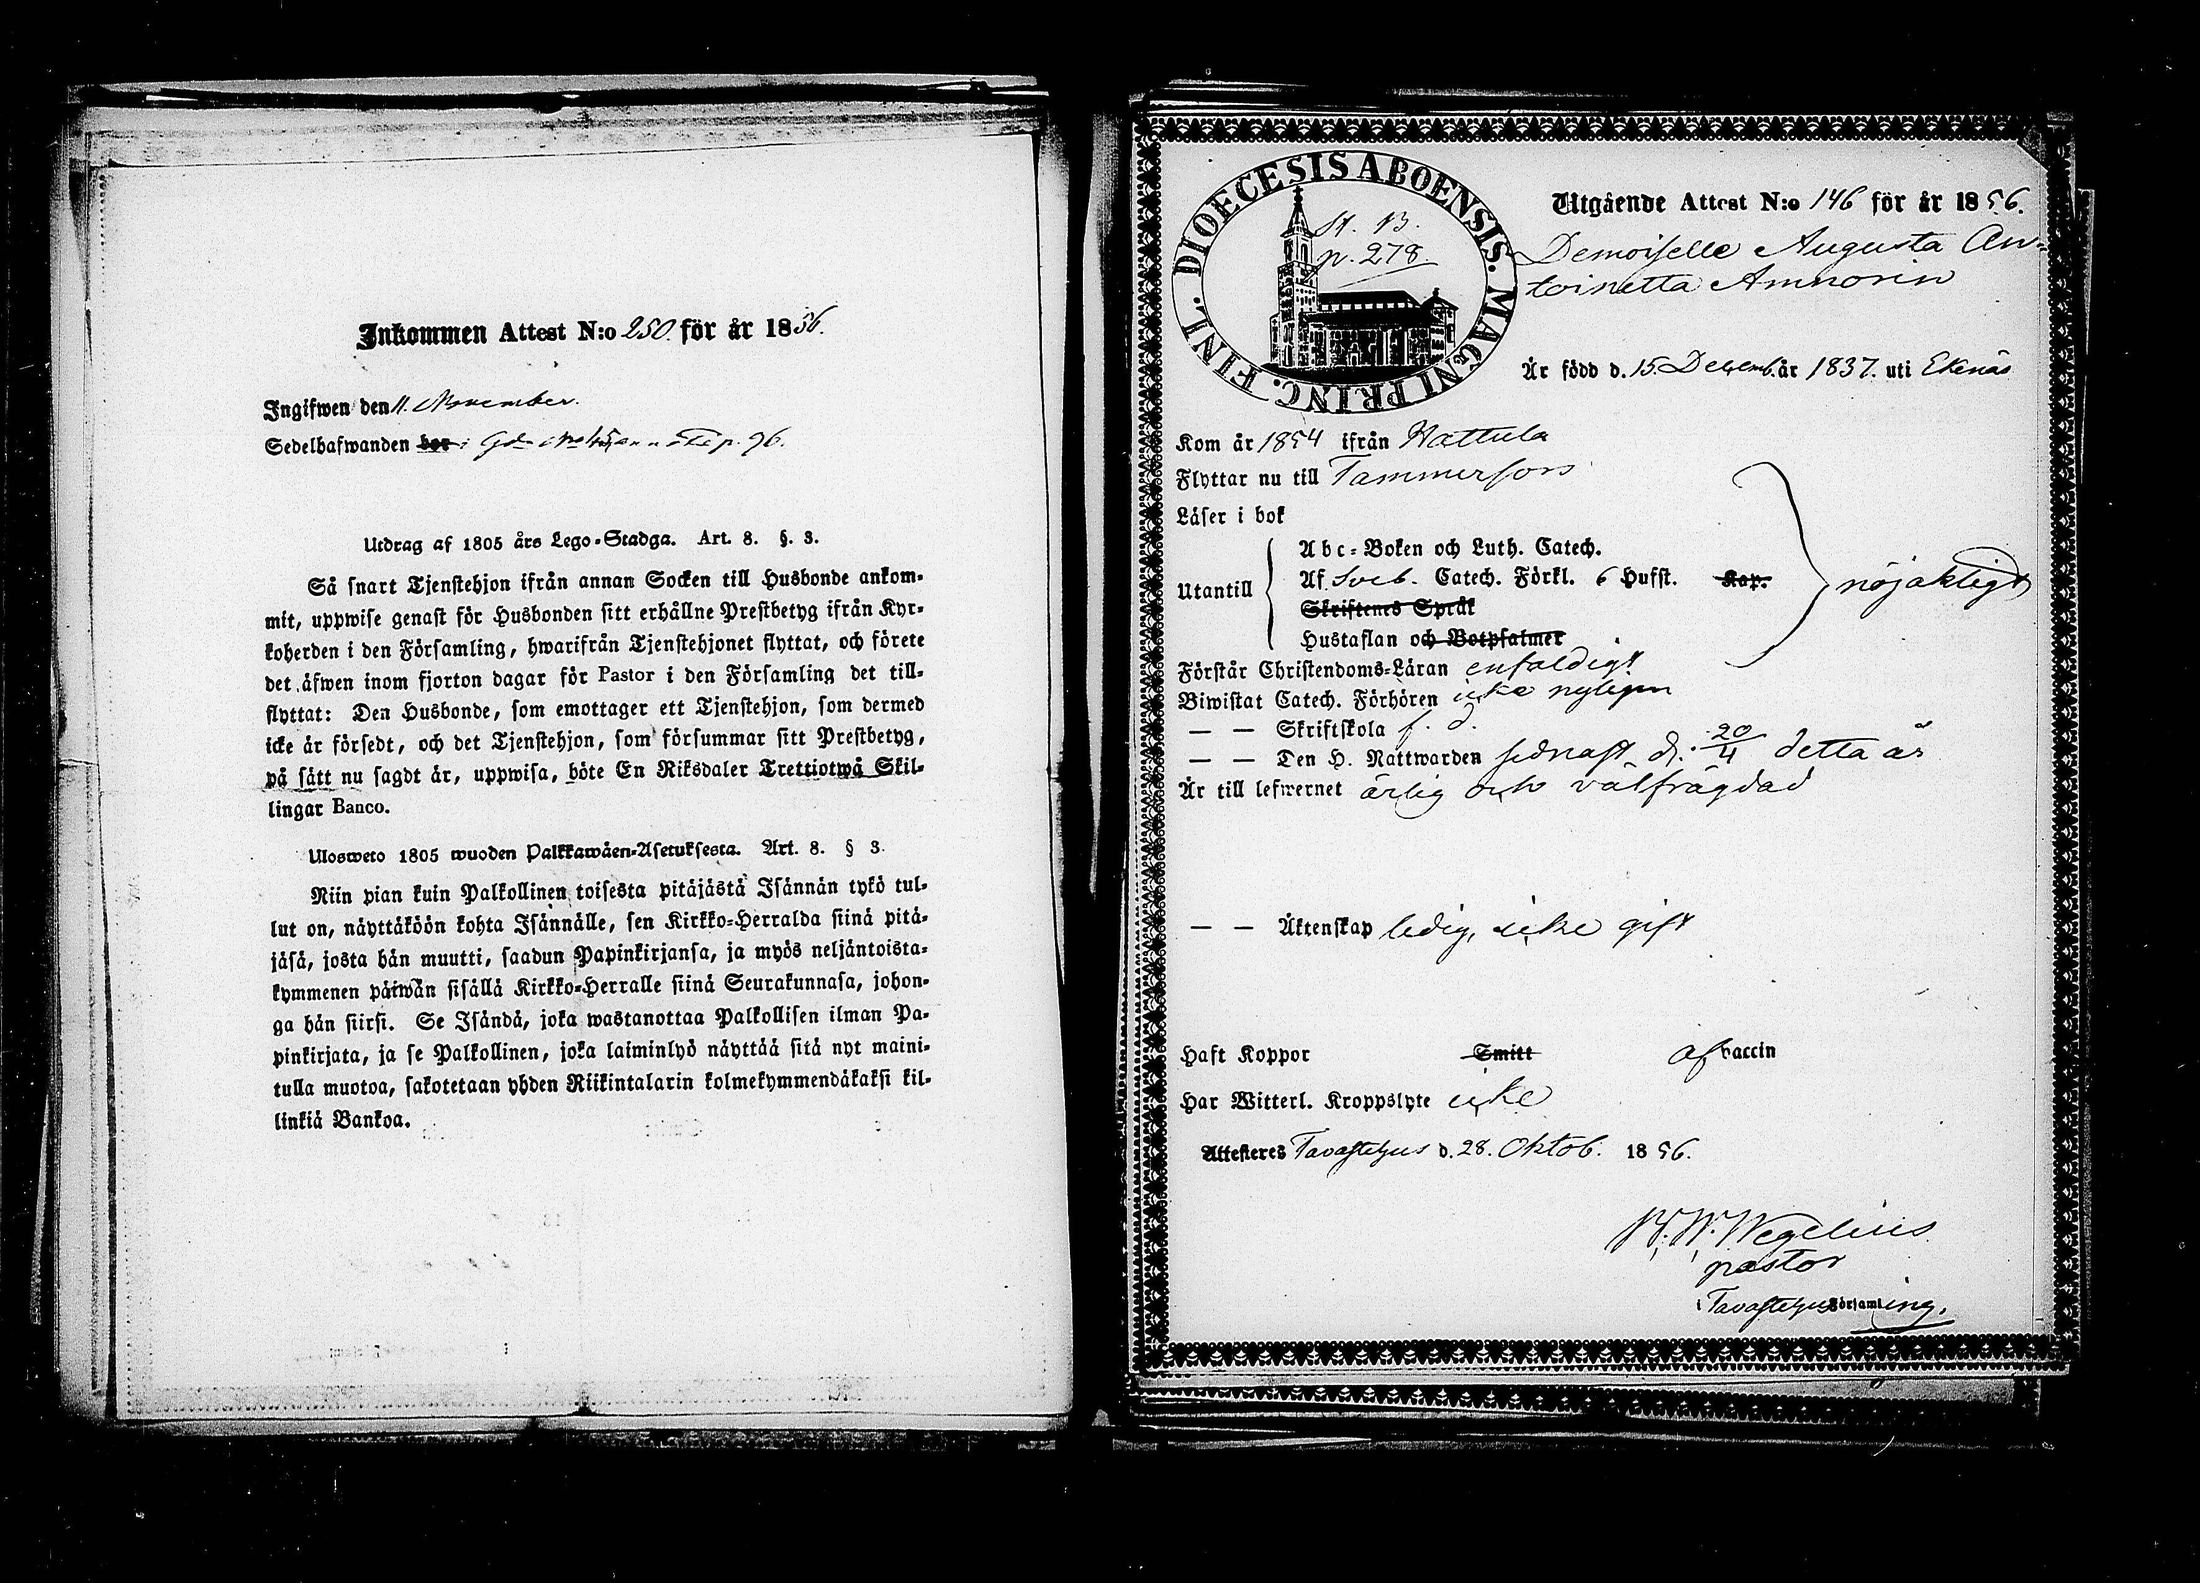 Inkommen Attest N:o 250. för år 1856.
Ingifwen den 11. November.
Sedelhafwanden bor i p. 96.
Utdrag af 1805 års Lego-Stadga. Art. 8. §. 3.
Så snart Tjenstehjon ifrån annan Socken till Husbonde ankom-
mit, uppwise genast för Husbonden sitt erhållne Prestbetyg ifrån Kyr-
koherden i den Församling, hwarifrån Tjenstehjonet flyttat, och förete
det äfwen inom fjorton dagar för Pastor i den Församling det till-
flyttat: Den Husbonde, som emottager ett Tjenstehjon, som dermed
icke är försedt, och det Tjenstehjon, som försummar sitt Prestbetyg,
på sätt nu sagdt är, uppwisa, böte En Riksdaler Trettiotwå Skil-
lingar Banco.
Ulosweto 1805 wuoden Palkkawäen-Asetuksesta. Art. 8. § 3.
Niin pian kuin Palkollinen toisesta pitäjästä Isännän tykö tul-
lut on, näyttäköön kohta Isännälle, sen Kirkko-Herralda siinä pitä-
jäsä, josta hän muutti, saadun Papinkirjansa, ja myös neljäntoista-
kymmenen päiwän sisällä Kirkko-Herralle siinä Seurakunnasa, johon-
ga hän siirsi. Se Isändä, joka wastanottaa Palkollisen ilman Pa-
pinkirjata, ja se Palkollinen, joka laiminlyö näyttää sitä nyt maini-
tulla muotoa, sakotetaan yhden Riikintalarin kolmekymmendäkaksi kil-
linkiä Bankoa.
DIOECESIS ABOENSIS. MAGNI PRINC. FINL.
St. B.
p. 278.
Utgående Attest N:o 146 för år 1856.
Demoiselle Augusta An-
toinetta Amnorin
Är född d. 15. Decemb. år 1837. uti Ekenäs
Kom år 1854 ifrån Hattula
Flyttar nu till Tammerfors
Läser i bok
Utantill
Abc-Boken och Luth. Catech.
Af Sveb. Catech. Förkl. 6 Hufst. Kap.
Skriftenes Språk
Hustaflan och Botpsalmer
nöjaktigt
Förstår Christendoms-Läran enfaldigt
Biwistat Catech. Förhören icke nyligen
— — Skriftskola f. d.
— — Den H. Nattwarden sednast d. 20/4 detta år
Är till lefwernet ärlig och välfrägdad
— — Äktenskap ledig, icke gift
Haft Koppor Smitt af vaccin
Har Witterl. Kroppslyte icke
Attesteres Tavastehus d. 28. Oktob. 1856.
W. Wegelius
pastor
i Tavastehus Församling.